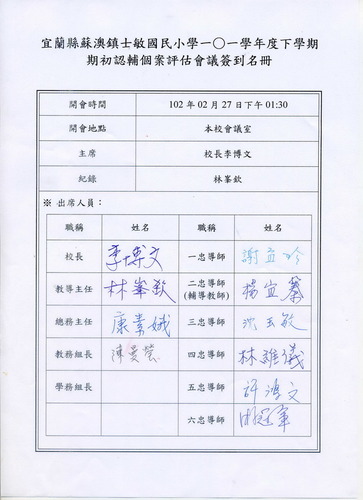 宜蘭縣蘇澳鎮士敏國民小學一〇一學年度下學期
期初認輔個案評估會議簽到名冊
開會時間 102 年 02 月 27 日下午 01:30
開會地點 本校會議室
主席 校長李博文
紀錄 林峯欽
※ 出席人員：
職稱 姓名 職稱 姓名
校長 李博文 一忠導師 謝宜玲
教導主任 林峯欽 二忠導師
(輔導教師) 楊宜蓁
總務主任 康素娥 三忠導師 沈玉敏
教務組長 陳曼瑩 四忠導師 林維儀
學務組長 五忠導師 許鴻文
六忠導師